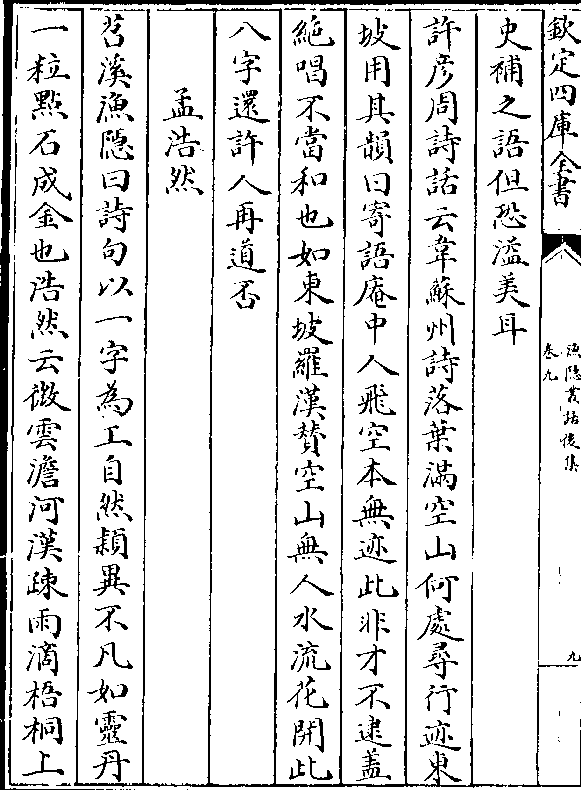 欽定四庫全書
漁隱叢話後集
卷九
九
史補之語但恐溢美耳
許彦周詩話云韋蘇州詩落葉滿空山何處尋行迹東
坡用其韻曰寄語庵中人飛空本無迹此非才不逮盖
絶唱不當和也如東坡羅漢賛空山無人水流花開此
八字還許人再道否
孟浩然
苕溪漁隠曰詩句以一字為工自然頴異不凡如靈丹
一粒點石成金也浩然云微雲澹河漢疎雨滴梧桐上